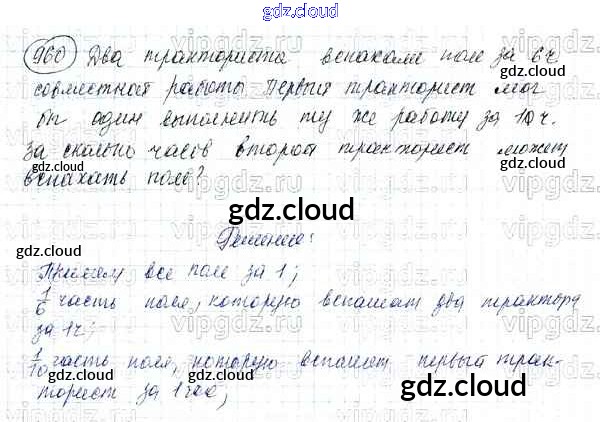 gdz.cloud
960 Два тракториста вспахали поле за 6ч
совместной работы Первый тракторист мог
бы один выполнить ту же работу за 10ч.
За сколько часов второй тракторист может
вспахать поле?
gdz.cloud
gdz.cloud
gdz.cloud
gdz.cloud
Решение:
Примем все поле за 1;
1/6 часть поля, которую вспашет два трактора
за 1ч;
gdz.cloud
1/10 часть поля, которую вспашет первый трак-
торист за 1час;
gdz.cloud
gdz.cloud